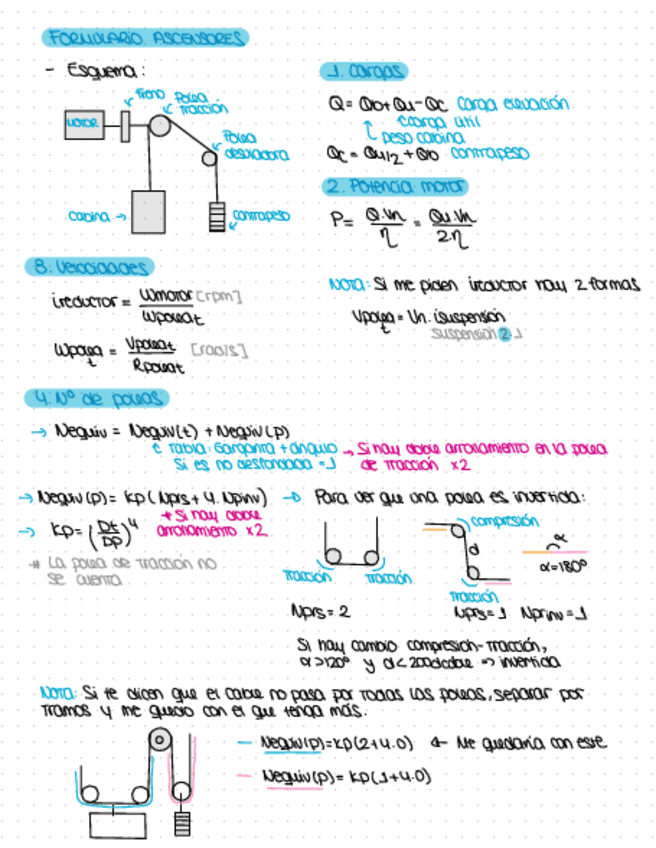 FORMULARIO. ASCENSORES
- Esquema:
Freno
Polea tracción
MOTOR
Polea desviadora
cabina →
contrapeso
1. Cargas
Q = Qo + Qu - Qc carga elevación
carga útil
peso cabina
Qc = Qu/2 + Qo contrapeso
2. Potencia motor
P = Q·Vn / η = Qu·Vn / 2·η
3. Velocidades
ireductor = Wmotor [rpm] / Wpolea t
Wpolea t = Vpolea t / Rpolea t [rad/s]
NOTA: Si me piden ireductor hay 2 formas
Vpolea t = Vn · isuspensión
suspensión 2:1
4. Nº de poleas
→ Nequiv = Nequiv(t) + Nequiv(p)
Tabla: Garganta + ángulo
Si es no desfondada = 1
→ Si hay doble arrollamiento en la polea
de tracción x2
→ Nequiv(p) = Kp (Nprs + 4·Nprinv)
→ Para ver que una polea es invertida:
* Si hay doble
arrollamiento x2
→ Kp = (Dt/Dp)^4
* La polea de tracción no
se cuenta
tracción tracción
Nprs = 2
compresión
d
tracción
α
α=180º
Nprs = 1 Nprinv = 1
Si hay cambio compresión-tracción,
α>120º y d<200dcable => invertida
NOTA: Si te dicen que el cable no pasa por todas las poleas, separar por
tramos y me quedo con el que tenga más.
— Nequiv(p) = Kp(2+4·0) ← Me quedaría con este
— Nequiv(p) = Kp(1+4·0)